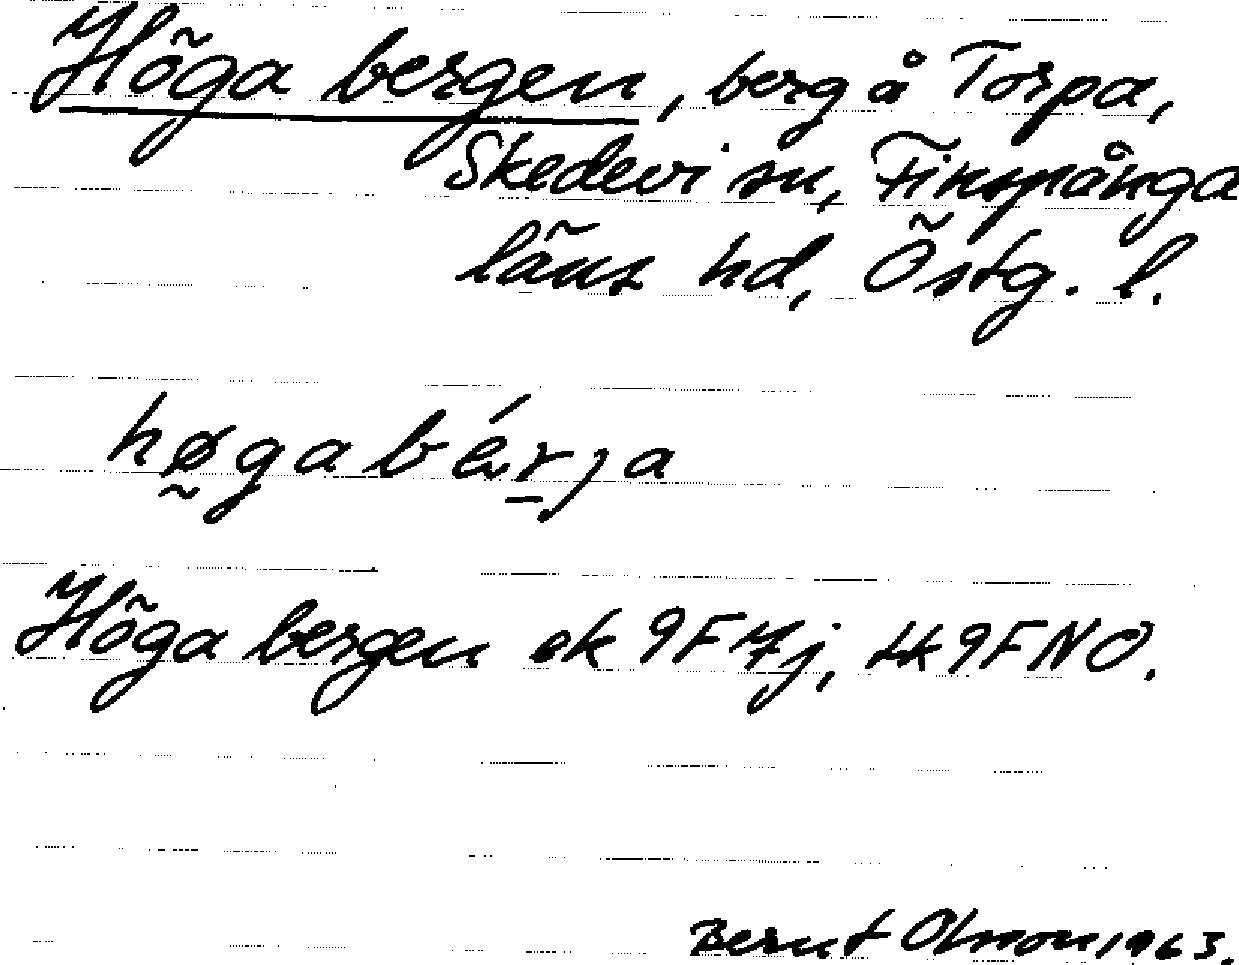 Höga bergen, berg å Torpa,
Skedevi sn, Finspånga
läns hd, Östg. l.
hø̰gabér̲ja
Höga bergen ek 9F7j, tk 9FNO.
Bernt Olmon 1963.